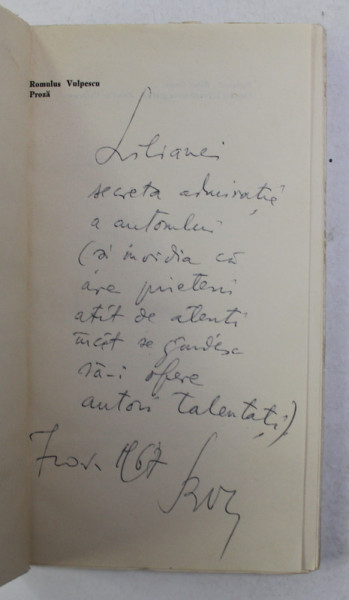 Romulus Vulpescu
Proză
Lilianei
secreta admirație
a autorului
(și invidia că
are prieteni
atît de atenți
încît se gîndesc
să-i ofere
autori talentați)
1967